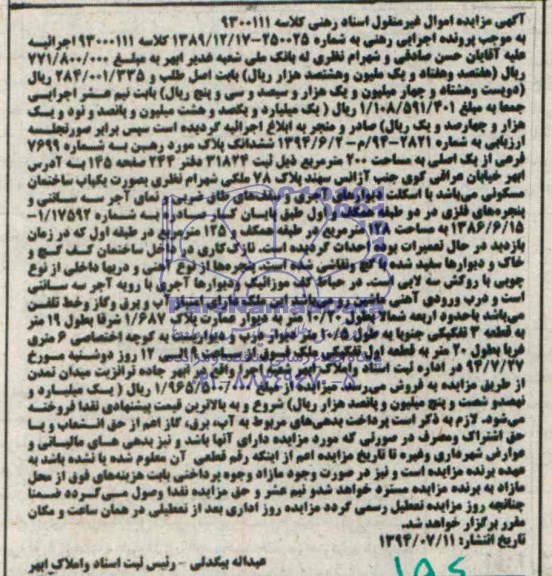 آگهی مزایده اموال غیرمنقول اسناد رهنی کلاسه ۹۳۰۰۱۱۱
به موجب پرونده اجرایی رهنی به شماره ۲۵۰۰۲۵-۱۳۸۹/۱۲/۱۷ کلاسه ۹۳۰۰۰۱۱۱ اجرائیه
علیه آقایان حسن صادقی و شهرام نظری له بانک ملی شعبه غدیر ابهر به مبلغ ۷۷۱/۸۰۰/۰۰۰
ریال (هفتصد وهفتاد و یک ملیون وهشتصد هزار ریال) بابت اصل طلب و ۲۸۴/۰۰۱/۳۳۵ ریال
(دویست وهشتاد و چهار میلیون و یک هزار و سیصد و سی و پنج ریال) بابت نیم عشر اجرایی
جمعا به مبلغ ۱/۱۰۸/۵۹۱/۴۰۱ ریال ( یک میلیارد و یکصد و هشت میلیون و پانصد و نود و یک
هزار و چهارصد و یک ریال) صادر و منجر به ابلاغ اجرائیه گردیده است سپس برابر صورتجلسه
ارزیابی به شماره ۲۸۲۱-۹۴/م-۱۳۹۴/۶/۲ ششدانگ پلاک مورد رهین به شماره ۷۶۹۹
فرعی از یک اصلی به مساحت ۲۰۰ مترمربع ذیل ثبت ۳۱۸۲۴ دفتر ۲۴۴ صفحه ۱۴۵ به آدرس
ابهر خیابان عراقی کوی جنب آژانس سهند پلاک ۷۸ ملکی شهرام نظری بصورت یکباب ساختمان
مسکونی می‌باشد با اسکلت دیوارهای آجری و سقف‌های طاق ضربی و نمای آجر سه سانتی و
پنجره‌های فلزی در دو طبقه همکف و اول طبق پایان کار صادره به شماره ۱/۱۷۵۹۲-
۱۳۸۶/۶/۱۵ به مساحت ۱۲۸ مترمربع در طبقه همکف و ۱۲۵ مترمربع در طبقه اول که در زمان
بازدید در حال تعمیرات بود احداث گردیده است. نازک‌کاری در داخل ساختمان کف گچ و
خاک و دیوارها سفید شده با گچ و نقاشی شده است. پنجره‌ها از نوع آهنی و دربها داخلی از نوع
چوبی با روکش سه لایی است. در حیاط کف موزائیک ودیوارها آجری با رویه آجر سه سانتی
است و درب ورودی آهنی ماشین رو می‌باشد این ملک دارای امتیاز آب و برق وگاز وخط تلفن
می‌باشد باحدود اربعه شمالا بطول ۱۰/۳۰ متر به دیوار پلاک ۱/۶۸۷ شرقا بطول ۱۹ متر
به قطعه ۳ تفکیکی جنوبا به طول ۱۰/۵ متر دیوار بدرب و دیواریست به کوچه اختصاصی ۶ متری
غربا بطول ۲۰ متر به قطعه اول از ساعت الی ۱۲ روز دوشنبه مورخ
۹۴/۷/۲۷ در اداره ثبت اسناد واملاک ابهر شعبه اجرا واقع در ابهر جاده ترانزیت میدان تمدن
از طریق مزایده به فروش می‌رسد. مزایده از مبلغ ریال ( یک میلیارد و
نهصدو شصت و پنج میلیون و پانصد هزار ریال) شروع و به بالاترین قیمت پیشنهادی نقدا فروخته
می‌شود. لازم به ذکر است پرداخت بدهی‌های مربوط به آب، برق، گاز اعم از حق انشعاب و یا
حق اشتراک ومصرف در صورتی که مورد مزایده دارای آنها باشد و نیز بدهی های مالیاتی و
عوارض شهرداری وغیره تا تاریخ مزایده اعم از اینکه رقم قطعی آن معلوم شده یا نشده باشد به
عهده برنده مزایده است و نیز در صورت وجود مازاد وجوه پرداختی بابت هزینه‌های فوق از محل
مازاد به برنده مزایده مسترد خواهد شدو نیم عشر و حق مزایده نقدا وصول می‌گردد ضمنا
چنانچه روز مزایده تعطیل رسمی گردد مزایده روز اداری بعد از تعطیلی در همان ساعت و مکان
مقرر برگزار خواهد شد.
تاریخ انتشار: ۱۳۹۴/۰۷/۱۱
عبداله بیگدلی - رئیس ثبت اسناد واملاک ابهر
ParsNamadData
۰۲۱-۸۸۳۴۹۶۷۰-۵